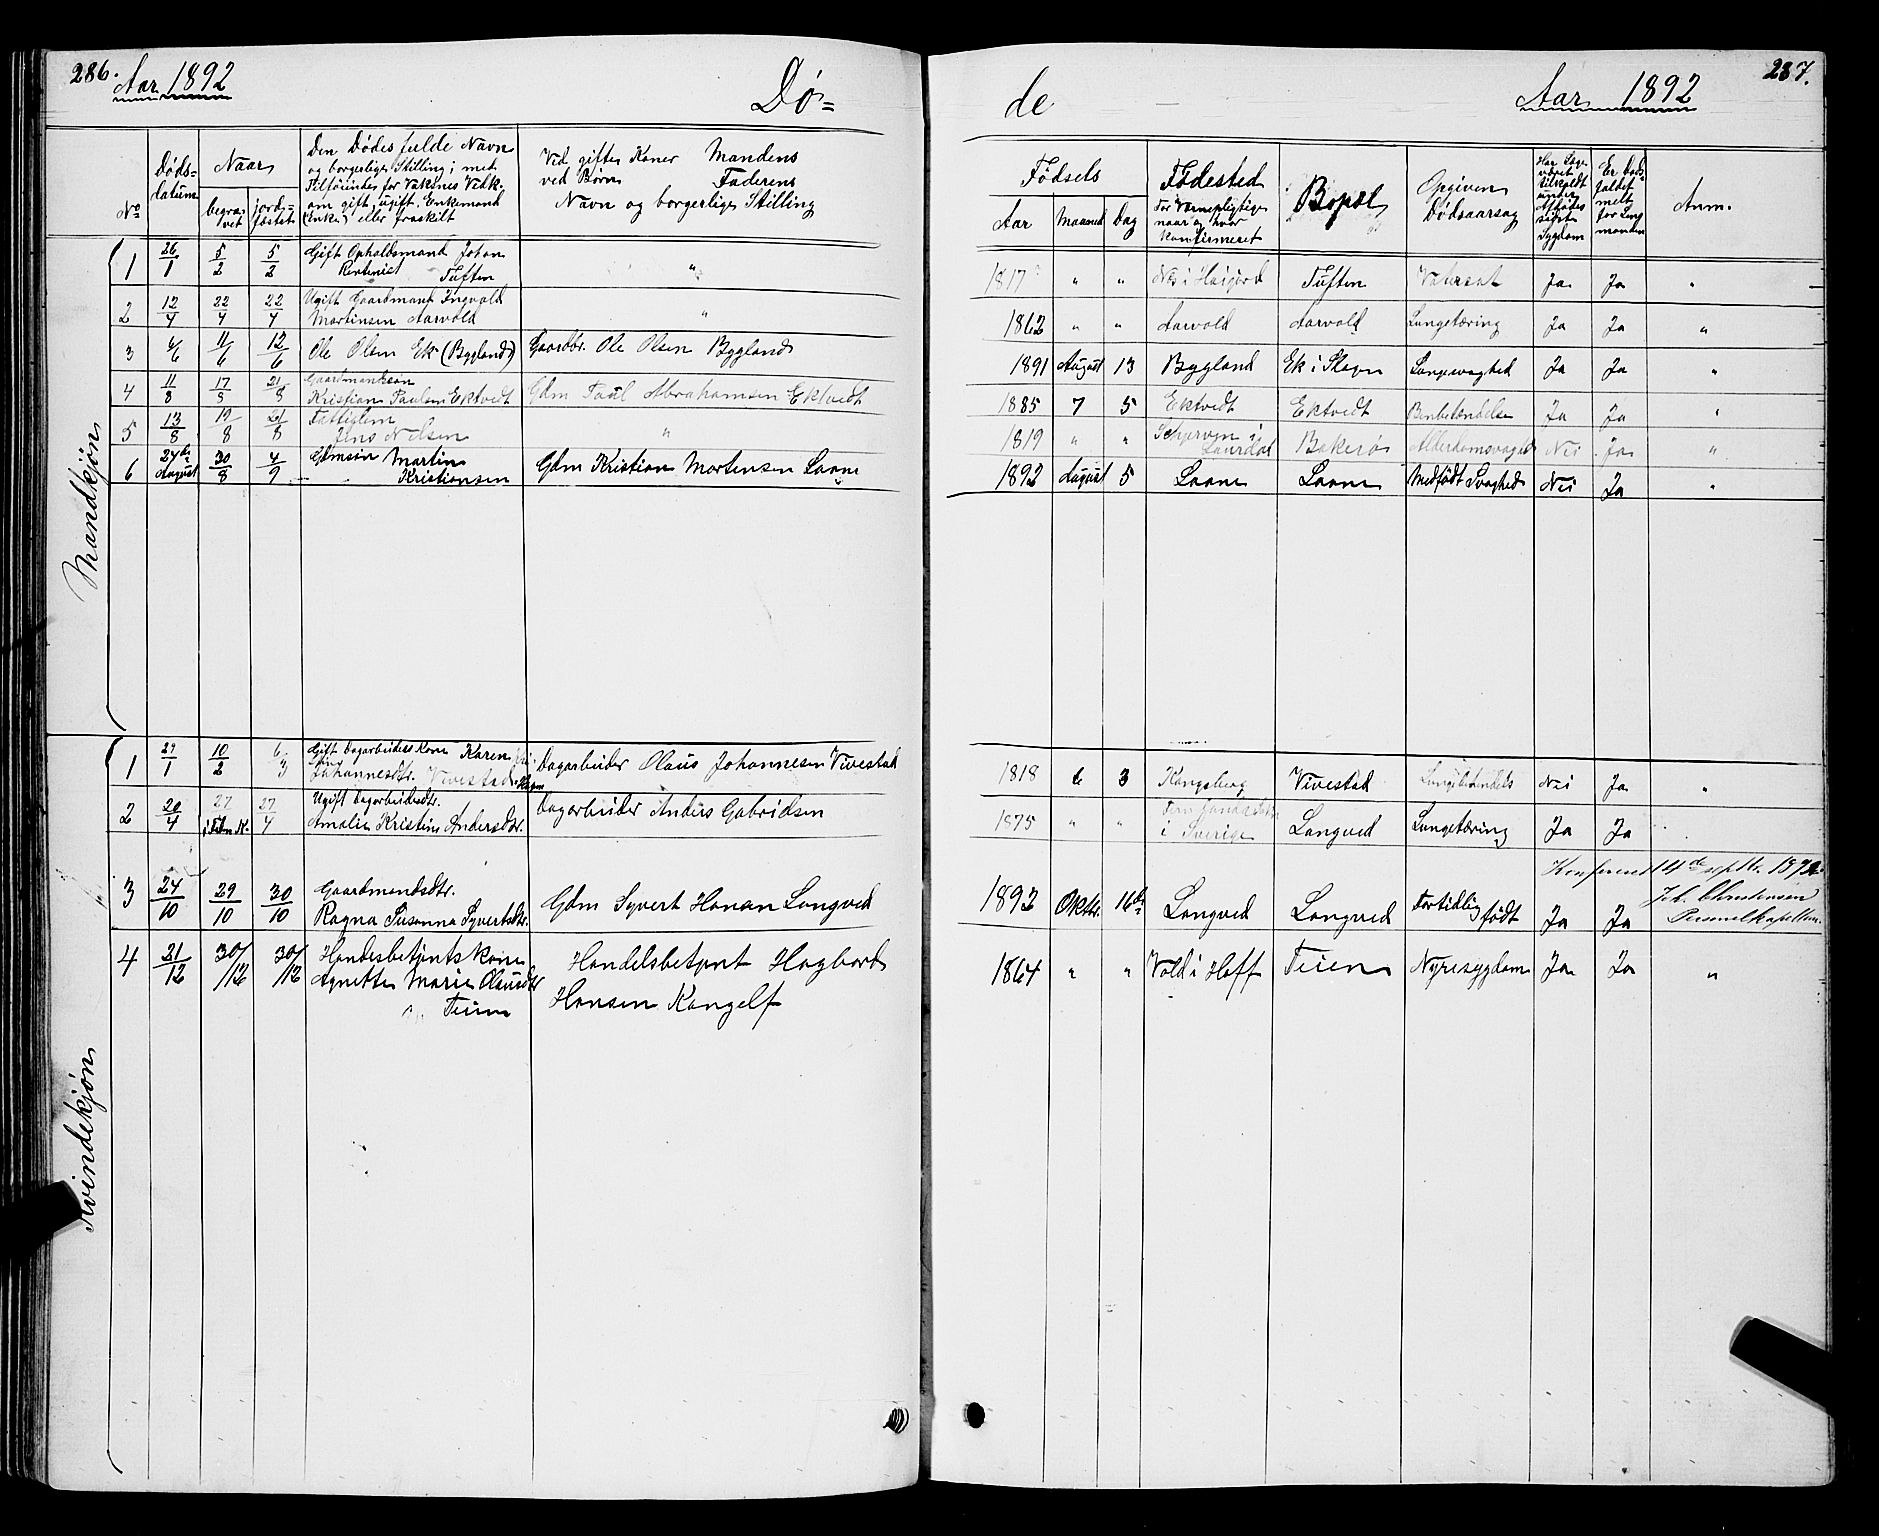 286.
Aar 1892
Dø=
No
Døds=
datum
Naar
begra=
vet
jords=
fæstet
Den Dødes fulde Navn
og borgerlige Stilling; med
Tilføiende for Voksnes Vedk.
om gift, ugift, Enkemand
(Enke) eller fraskilt
Ved gifte Koner Mandens
ved Børn Faderens
Navn og borgerlige Stilling
Mandkjøn
1 26/1 5/2 5/2 Gift Opholdsmand Johan
Tuften "
2 12/4 22/4 22/4 Ugift Gaardmand Ingvald
Martinsen Aarvold "
3 4/6 11/6 12/6 Ole Olsen Ek (Bygland) Gaardbr. Ole Olsen Bygland
4 11/8 17/8 21/8 Gaardmandssøn
Kristian Paulsen Ektvedt Gdm Paul Abrahamsen Ektvedt
5 13/8 19/8 21/8 Fattiglem
Jens Nilsen "
6 24de August 30/8 4/9 Gdmsøn Martin
Kristiansen Gdm Kristian Martensen Laane
Kvindekjøn
1 29/1 10/2 6/3 Gift Dagarbeiders Kone Karen
Johannesdtr. Vivestad Dagarbeider Olaus Johannesen Vivestad
2 20/4 27/4 Ugift Dagarbeiderdtr.
Amalie Kristine Andersdtr. Dagarbeider Anders Gabrielsen
3 24/10 29/10 30/10 Gaardmandsdtr.
Ragna Susanna Syvertsdtr. Gdm Syvert Hansen Langved
4 21/12 30/12 30/12 Handelsbetjents Kone
Agnette Marie Olausdtr
Teien Handelsbetjent Hagbart
Hansen Kangelf
237.
de
Aar 1892
Fødsels
Aar Maaned Dag
Fødested
For Værnepligtige
naar og hvor
konfirmeret
Bopæl
Opgiven
Dødsaarsag
Har Læge
været
tilkaldt
under
Afdødes
sidste
Sygdom
Er Døds=
faldet
meldt
for Lens=
manden
Anm.
1817 " " Tuften Ja Ja "
1862 " " Aarvold Aarvold Lungetæring Ja Ja "
1891 August 13 Bygland Ek i Slagn Lungesvaghed Ja Ja "
1885 7 5 Ektvedt Ektvedt Benbetændelse Ja Ja "
1819 " " Schjerven i
Laurdal Bakerø Alderdomssvaghed Nei Ja "
1892 August 5 Laane Laane Medfødt Svaghed Nei Ja "
1818 6 3 Kongsberg Vivestad Nei Ja "
1875 " "
i Sverige Langved Lungetæring Ja Ja
1892 Oktbr. 16de Langved Langved Fortidlig
født Ja Ja
Konfereret 14de septbr. 1892
Joh. Christensen
Personelkapellan.
1864 " " Vold i Hoff Teien Nyresygdom Ja Ja "